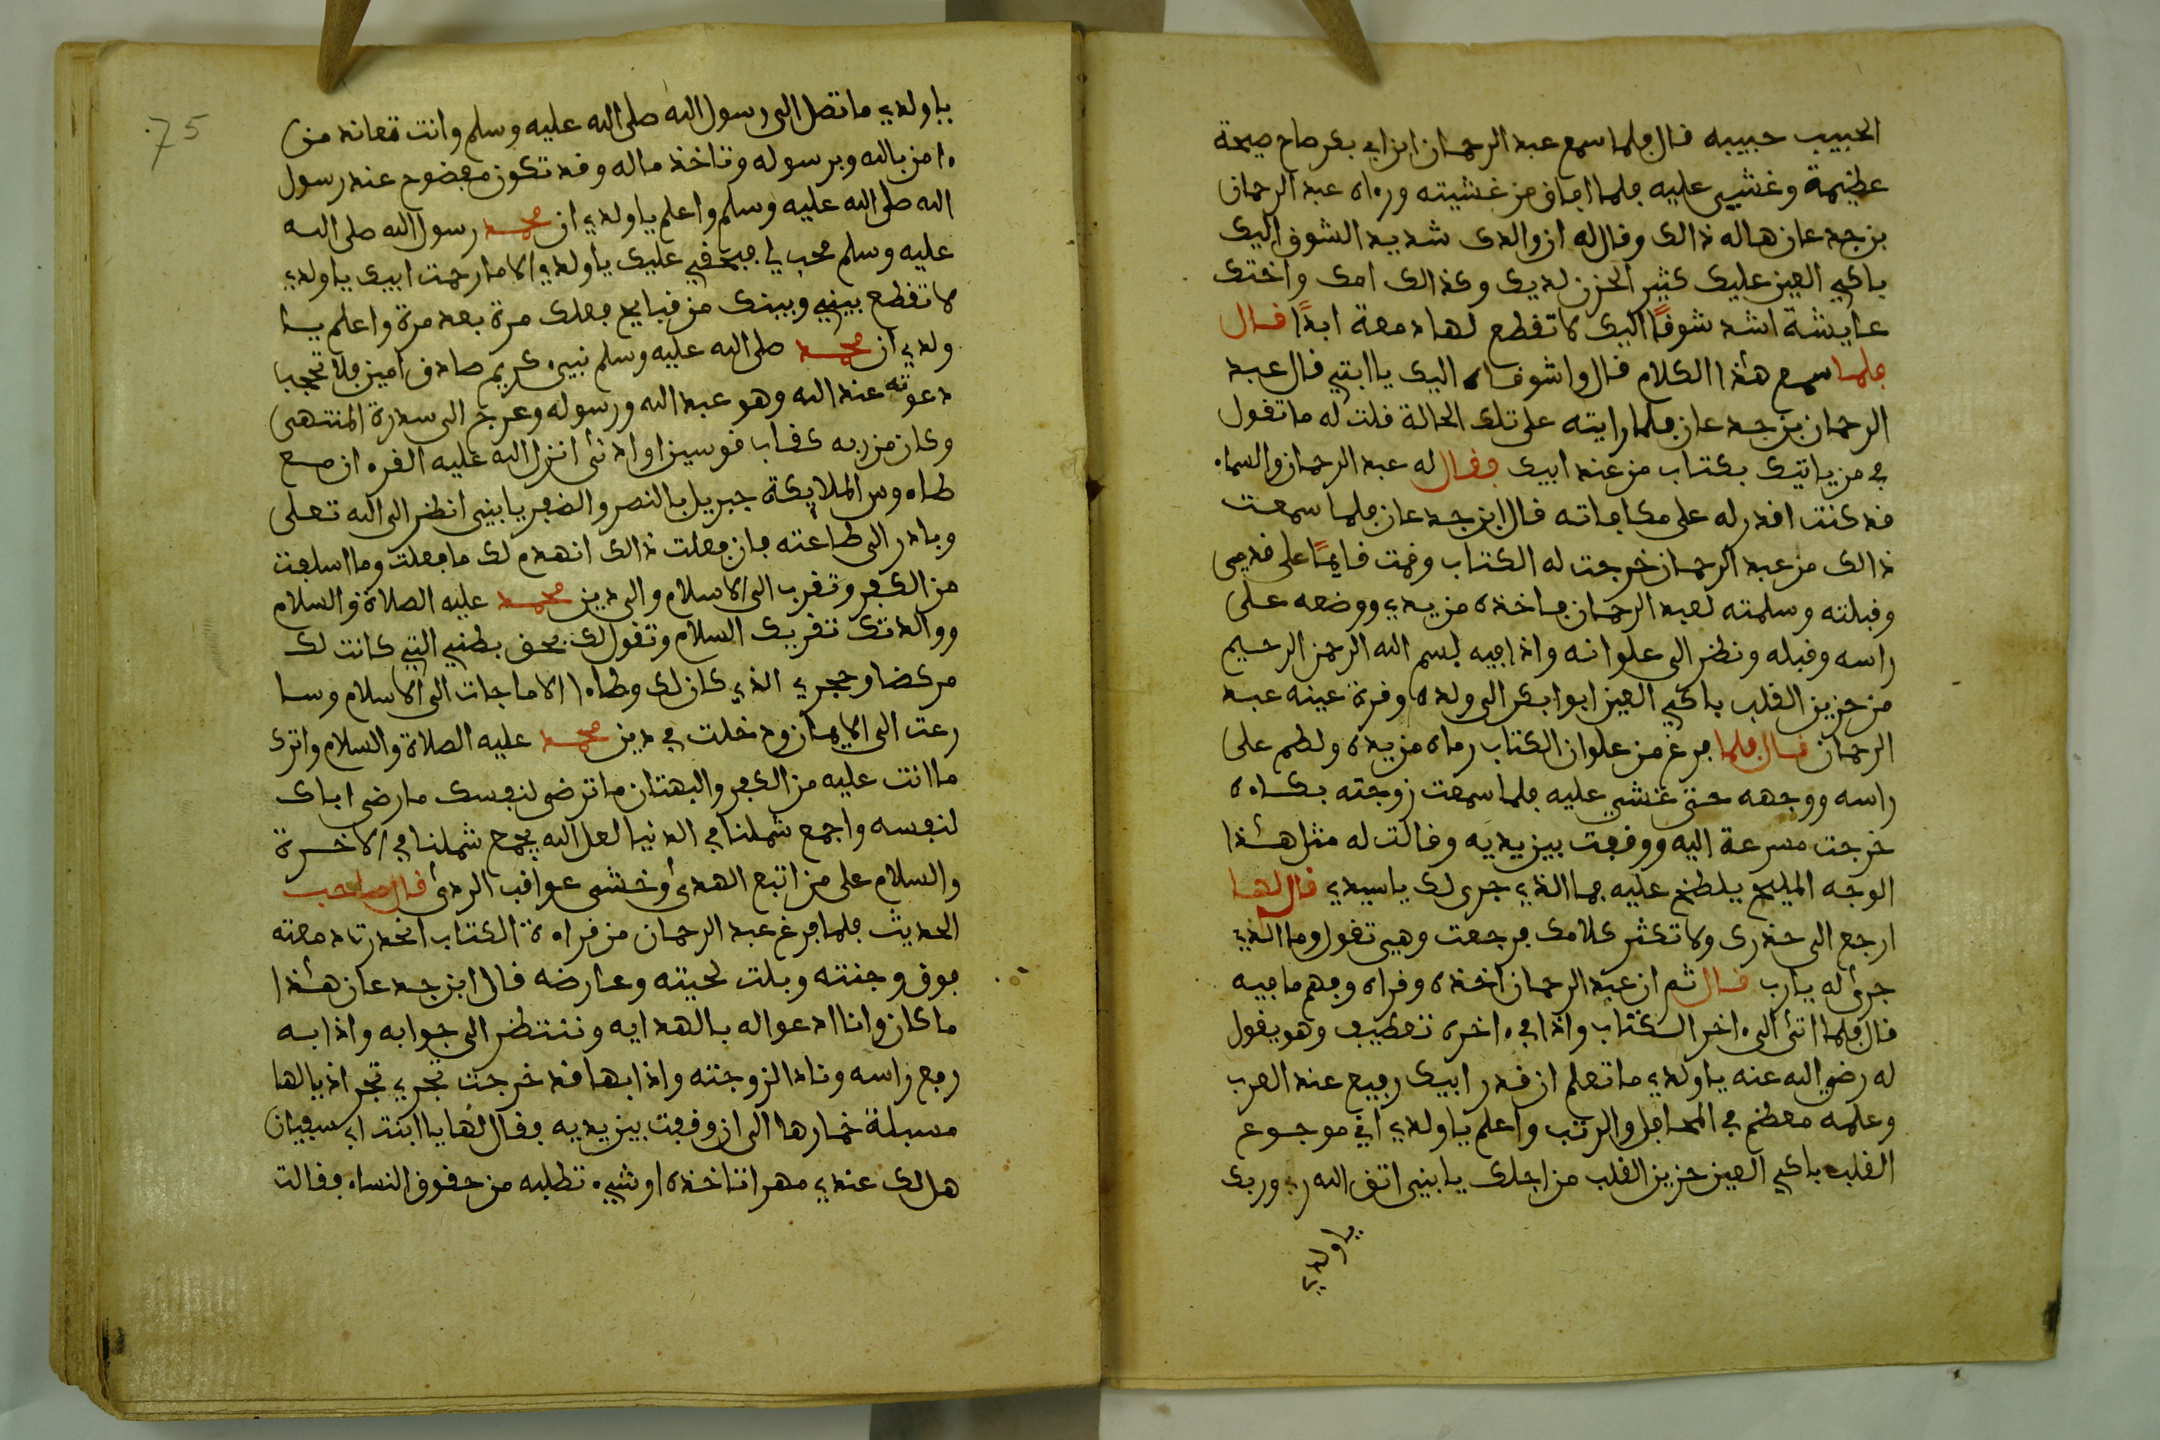 الحبيب حبيبه فال فلما سمع عبد الرحمان ابن ابي بكر صاح صيحة
عظيمة وغشي عليه فلما افاق من غشيته ورءاه عبد الرحمان
بن جدعان هاله ذالك وقال له ان والدك شديد الشوق اليك
باكي العين عليك كثير الحزن لديك وكذالك امك واختك
عايشة اشد شوقا اليك لا تقطع لها دمعة ابدا قال
فلما سمع هذا الكلام قال واشوقاه اليك يا ابتي قال عبد
الرحمان بن جدعان فلما رايته على تلك الحالة قلت له ما تقول
في من ياتيك بكتاب من عند ابيك فقال له عبد الرحمان والسماء
قد كنت اقدر له على مكافاته قال ابن جدعان فلما سمعت
ذالك من عبد الرحمان خرجت له الكتاب وقمت قايما على قدمي
وقبلته وسلمته لعبد الرحمان فاخذه من يدي ووضعه على
راسه وقبله ونظر الى علوانه واذا فيه بسم الله الرحمن الرحيم
من حزين القلب باكي العين ابوا بكر الى ولده وقرة عينه عبد
الرحمان قال فلما فرغ من علوان الكتاب رماه من يده ولطم على
راسه ووجهه حتى غشي عليه فلما سمعت زوجته بكاه
خرجت مسرعة اليه ووقفت بين يديه وقالت له مثل هذا
الوجه المليح يلطخ عليه فما الذي جرى لك يا سيدي قال لها
ارجع الى خدرك ولا تكثر كلامك فرجعت وهي تقول وما الذي
جرى له يارب قال ثم ان عبد الرحمان اخذه وقراه وفهم ما فيه
قال فلما اتى الى ءاخر الكتاب واذا في ءاخره وهو يقول
له رضي الله عنه يا ولدي ما تعلم ان قدر ابيك رفيع عند العرب
وعلمه معظم في المحافل والرتب واعلم يا ولدي اني موجوع
القلب باكي العين حزين القلب من اجلك يا بني اتق الله ربي وربك
يا ولدي
75
يا ولدي ما تصل الى رسول الله صلى الله عليه وسلم وانت تعاند من
ءامن بالله وبرسوله وتاخذ ماله وقد تكون مفضوح عند رسول
الله صلى الله عليه وسلم واعلم يا ولدي ان محمد رسول الله صلى الله
عليه وسلم محب لي فبحقي عليك يا ولدي الا ما رحمت ابيك يا ولدي
لا تقطع بيني وبينك من قبايح فعلك مرة بعد مرة واعلم يا
ولدي ان محمد صلى الله عليه وسلم نبيء كريم صادق امين فلا تحجب
دعوته عند الله وهو عبد الله ورسوله وعرج الى سدرة المنتهى
وكان من ربه كقاب قوسين او ادنى انزل الله عليه القرءان مع
طاووس الملايكة جبريل بالنصر والضفر يا بني انظر الى الله تعلى
وبادر الى طاعته فان فعلت ذالك انهدم لك ما فعلت وما اسلفت
من الكفر وتقرب الى الاسلام والى دين محمد عليه الصلاة والسلام
ووالدتك تقريك السلام وتقول لك بحق بطني التي كانت لك
مركضا وحجري الذي كان لك وطاءا الا ما جات الى الاسلام وسا
رعت الى الايمان ودخلت في دين محمد عليه الصلاة والسلام واترك
ما انت عليه من الكفر والبهتان ما ترضى لنفسك ما رضى اباك
لنفسه واجمع شملنا في الدنيا لعل الله يجمع شملنا في الاخرة
والسلام على من اتبع الهدى وخشى عواقب الردى قال صاحب
الحديث فلما فرغ عبد الرحمان من قراءة الكتاب انحدرت دمعته
فوق وجنته وبلت لحيته وعارضه قال ابن جدعان هذا
ما كان وانا ادعوا له بالهدايه وننتظر الى جوابه واذا به
رفع راسه ونادا لزوجته واذا بها قد خرجت تجري تجر اذيالها
مسبلة خمارها الى ان وقفت بين يديه فقال لها يا ابنت ابي سفيان
هل لك عندي مهرا تاخذه او شيء تطلبه من حقوق النساء فقالت